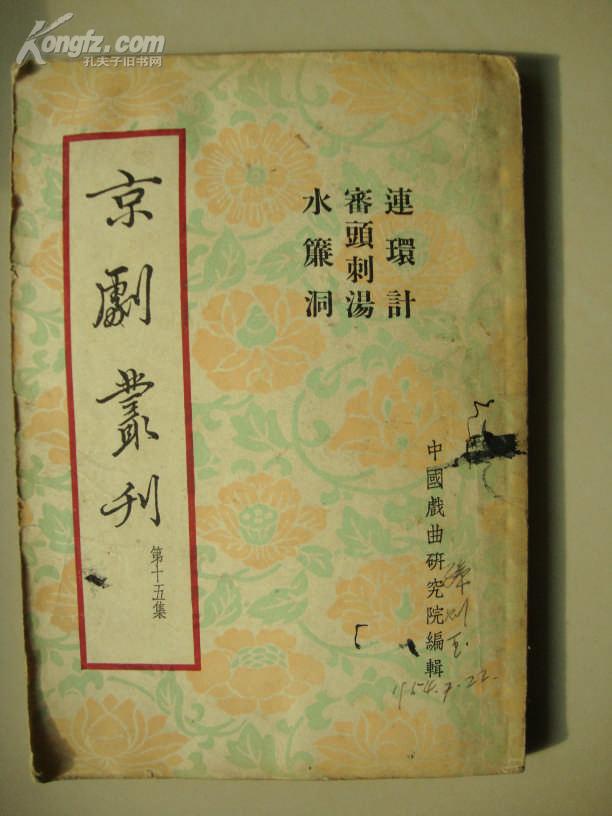 Kongfz.com
孔夫子旧书网
連環計
審頭刺湯
水簾洞
京劇叢刊
第十五集
中國戲曲研究院編輯